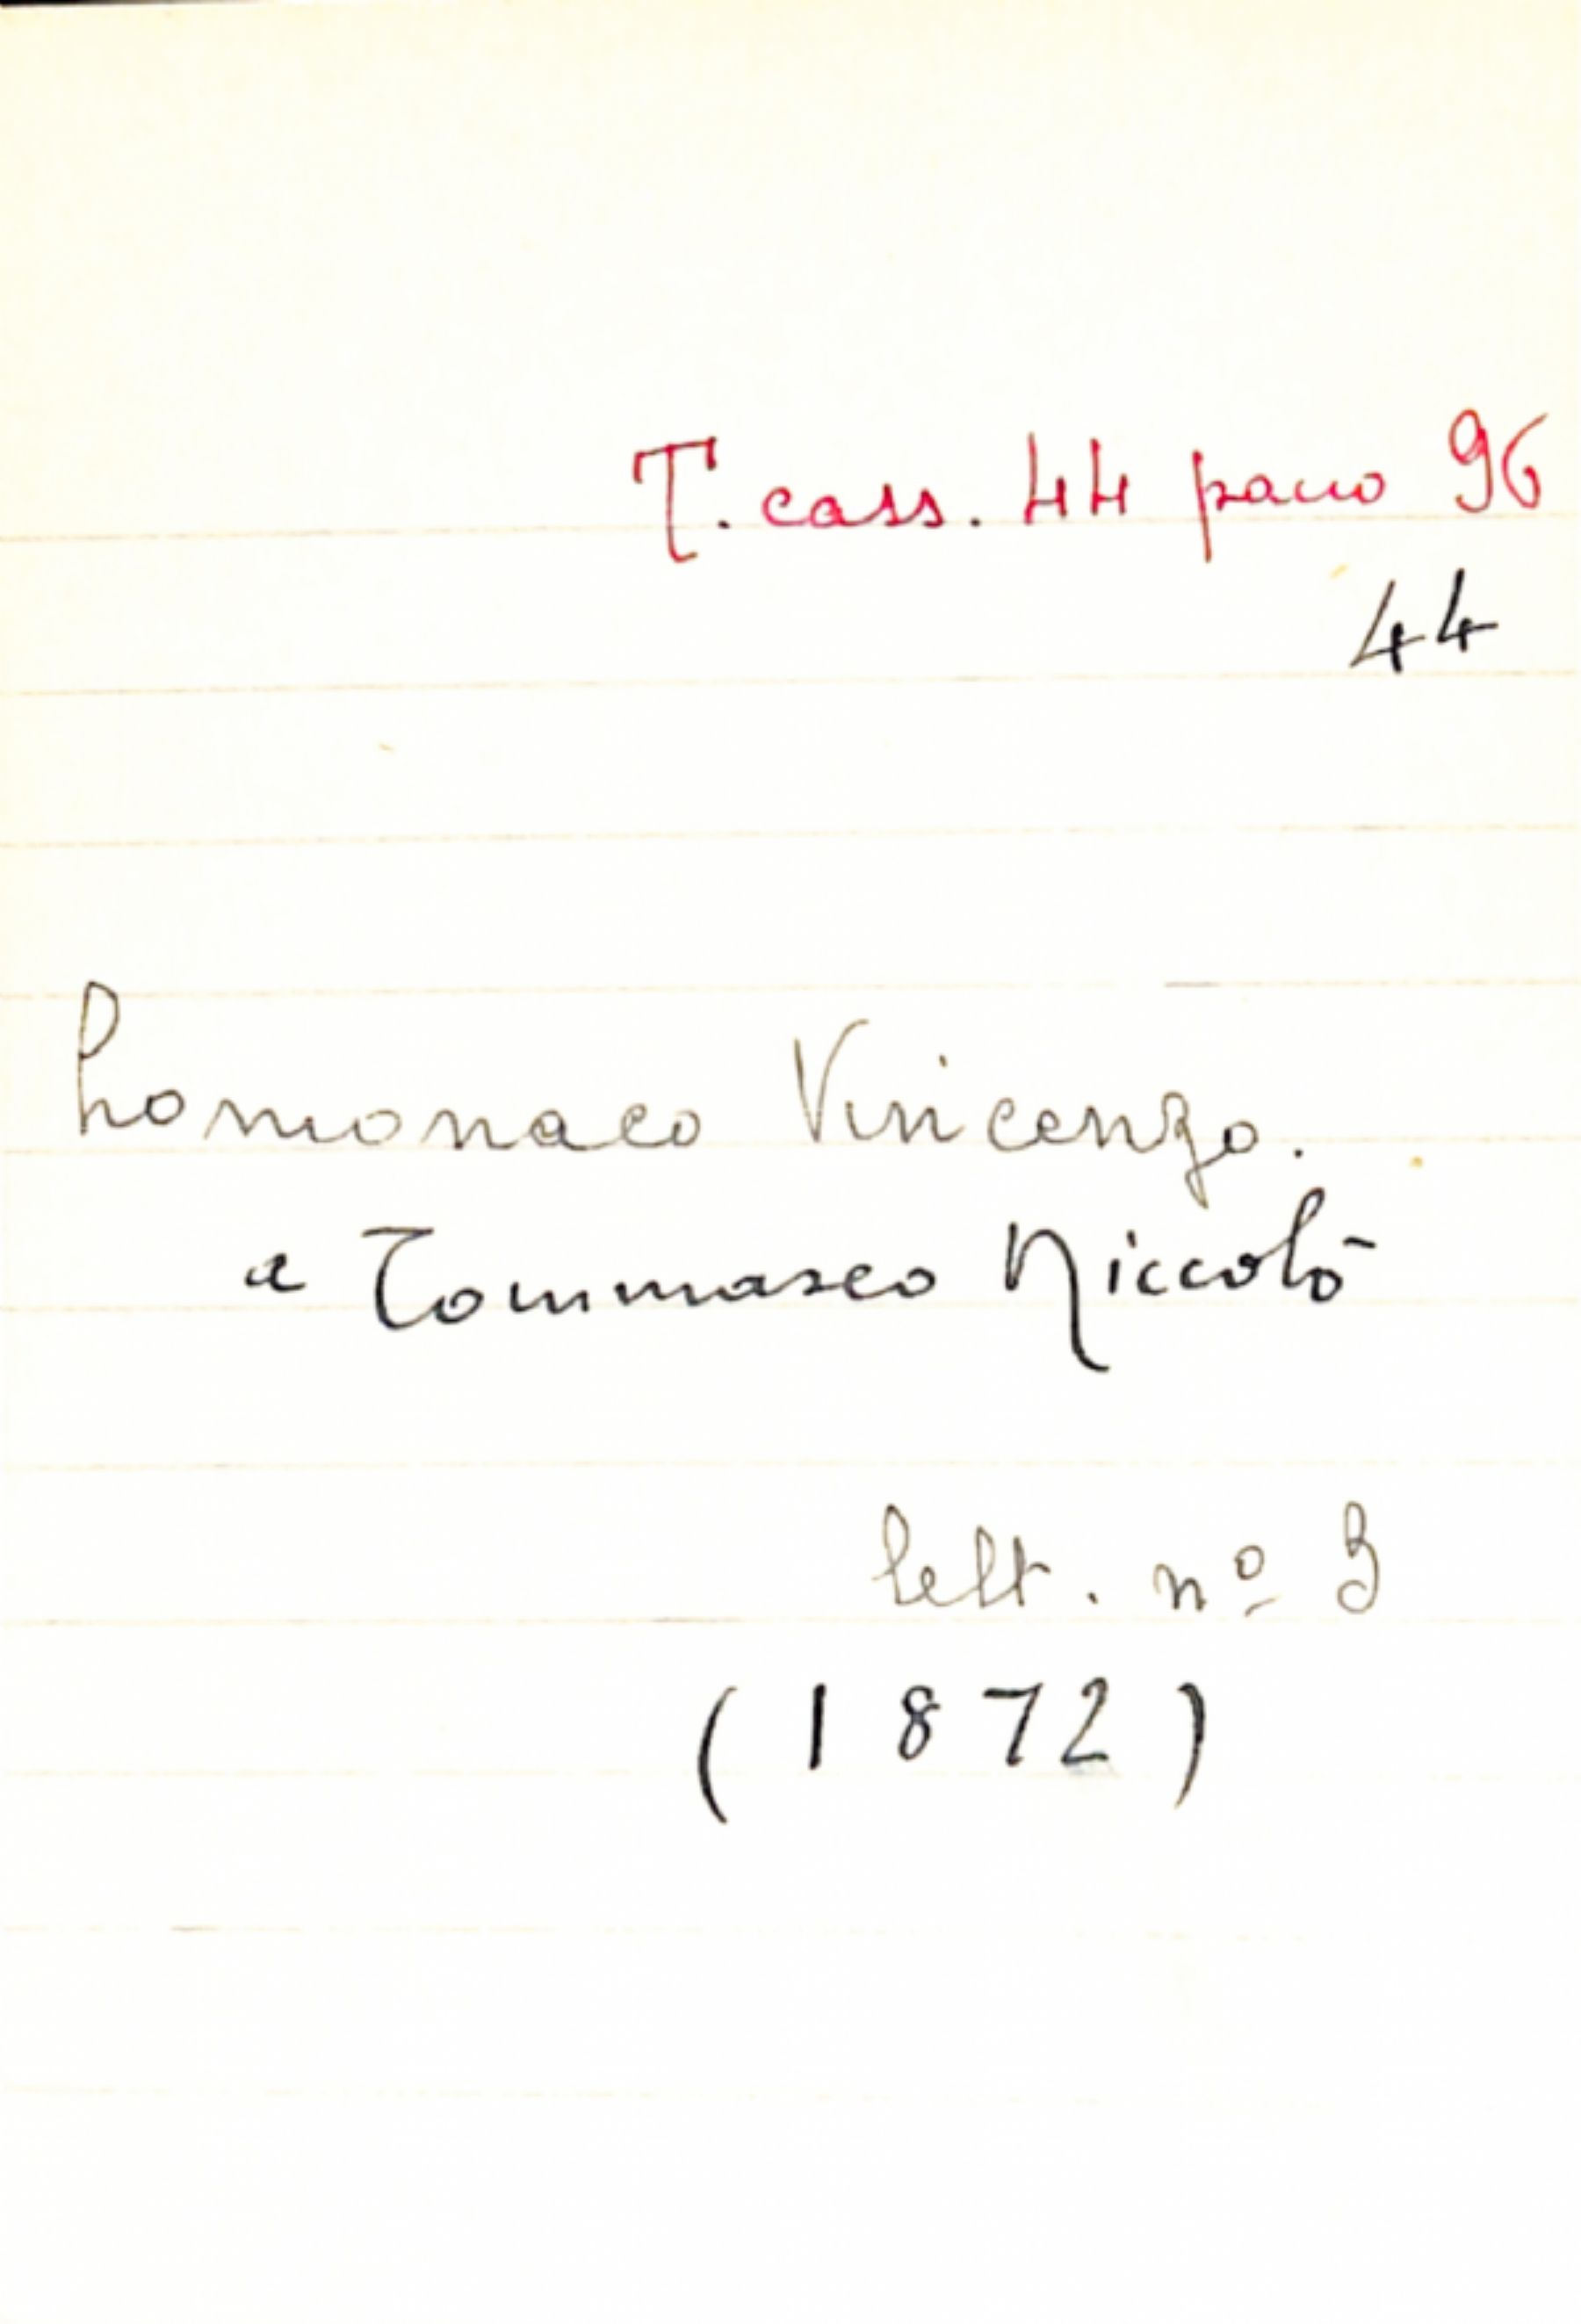 T. cass. 44 pacco 96
44
Lomonaco Vincenzo.
a Tommaseo Niccolò
lett. nº 3
(1872)